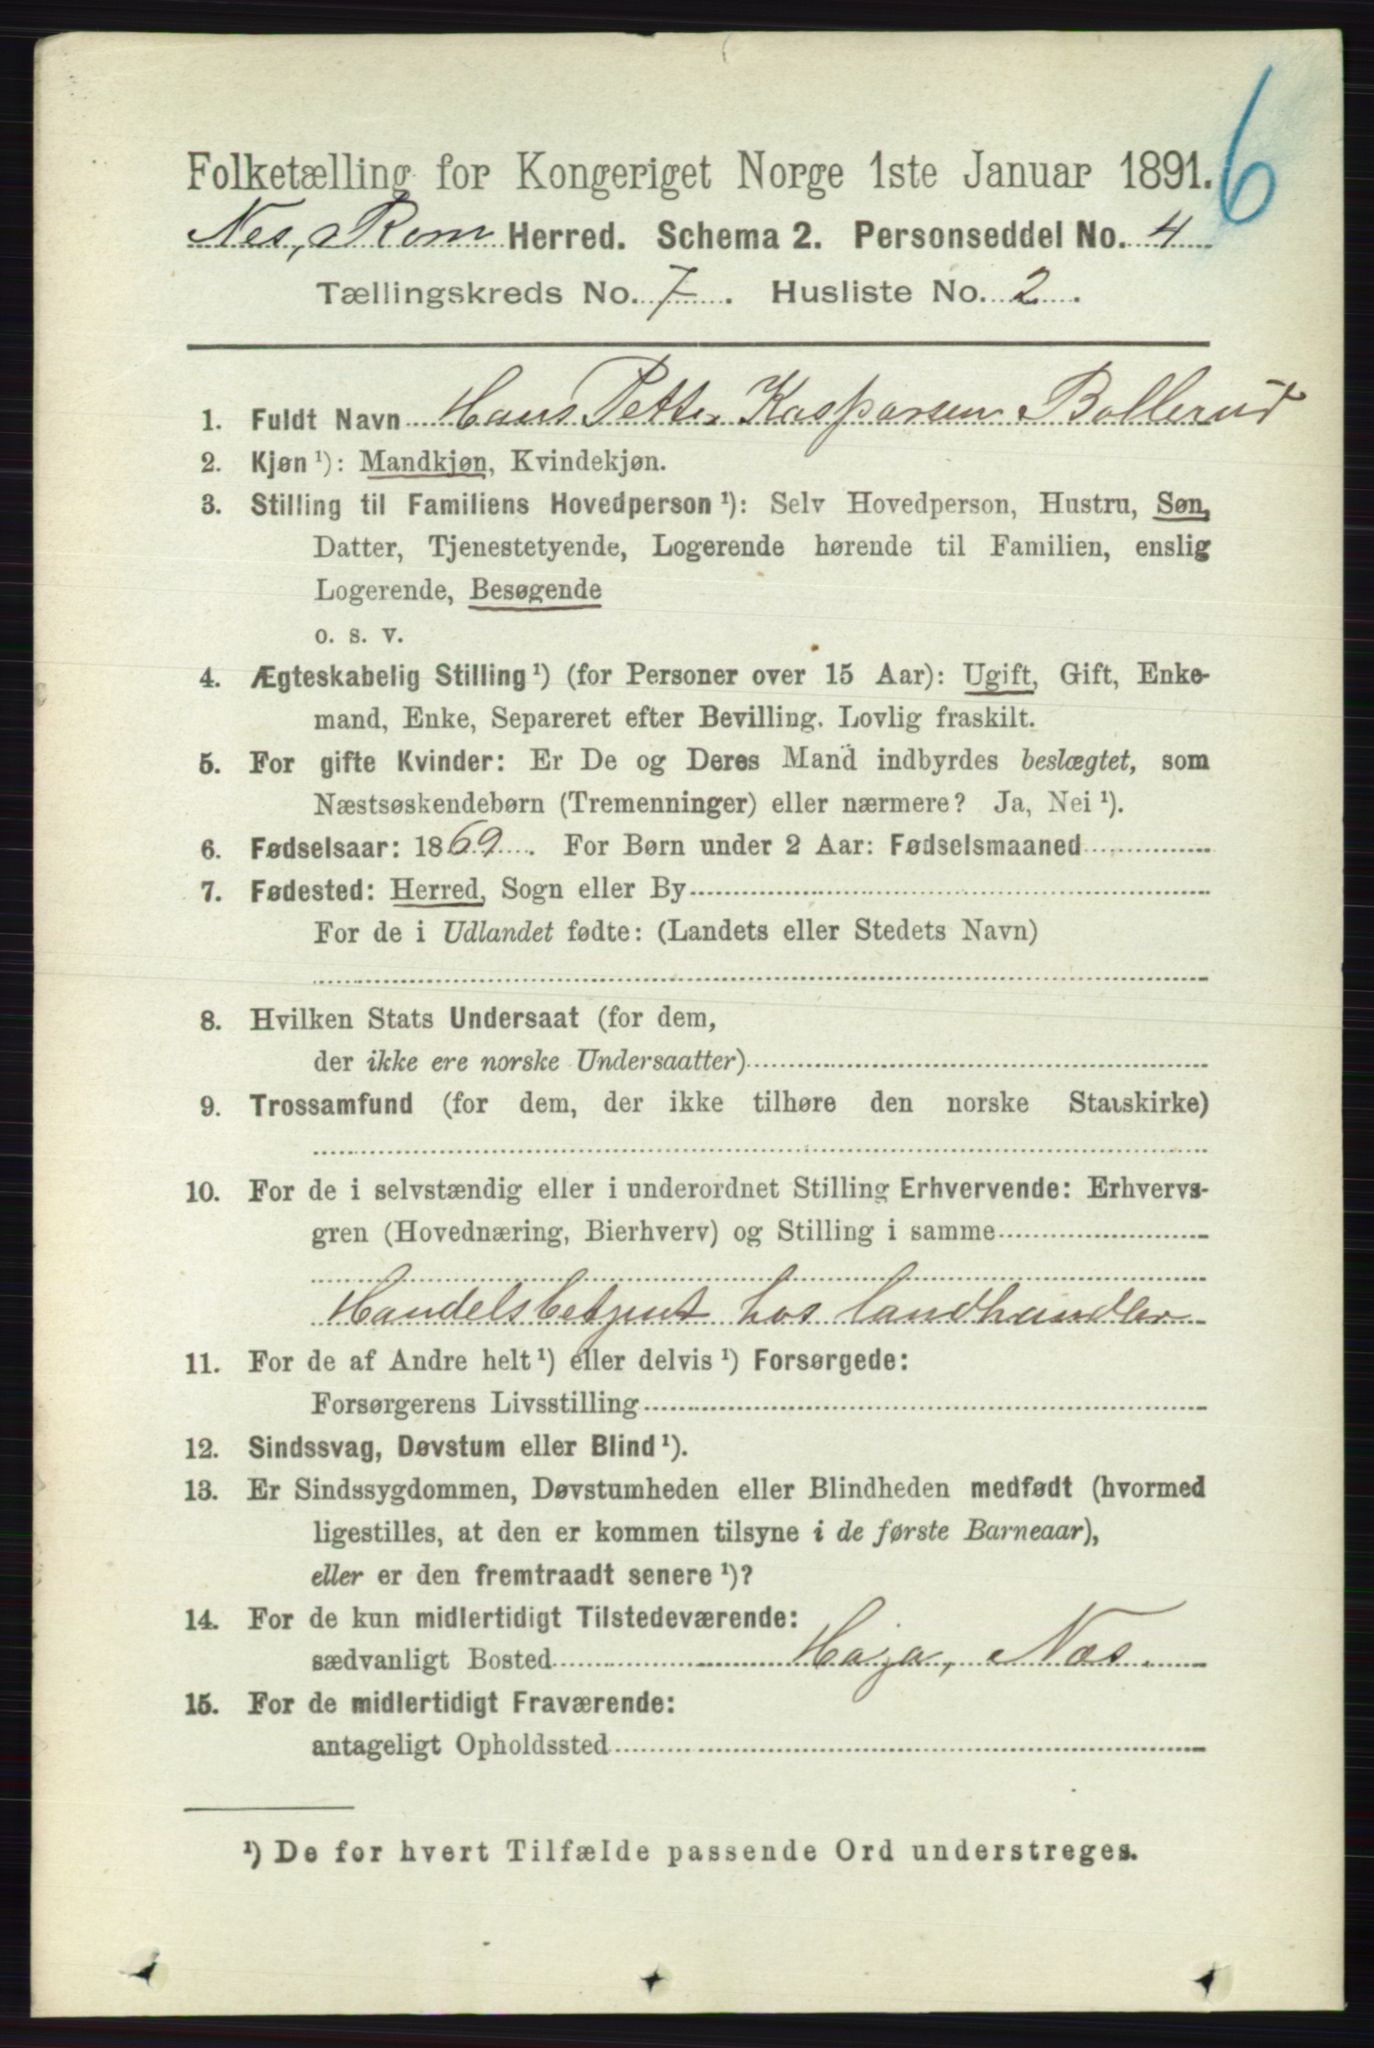 6
Folketælling for Kongeriget Norge 1ste Januar 1891.
Nes, Rom Herred. Schema 2. Personseddel No. 4
Tællingskreds No. 7. Husliste No. 2.
1. Fuldt Navn Hans Petter Kaspersen Bollerud
2. Kjøn ¹): Mandkjøn, Kvindekjøn.
3. Stilling til Familiens Hovedperson ¹): Selv Hovedperson, Hustru, Søn,
Datter, Tjenestetyende, Logerende hørende til Familien, enslig
Logerende, Besøgende
o. s. v.
4. Ægteskabelig Stilling ¹) (for Personer over 15 Aar): Ugift, Gift, Enke-
mand, Enke, Separeret efter Bevilling. Lovlig fraskilt.
5. For gifte Kvinder: Er De og Deres Mand indbyrdes beslægtet, som
Næstsøskendebørn (Tremenninger) eller nærmere? Ja, Nei ¹).
6. Fødselsaar: 1869. For Børn under 2 Aar: Fødselsmaaned
7. Fødested: Herred, Sogn eller By
For de i Udlandet fødte: (Landets eller Stedets Navn)
8. Hvilken Stats Undersaat (for dem,
der ikke ere norske Undersaatter)
9. Trossamfund (for dem, der ikke tilhøre den norske Statskirke)
10. For de i selvstændig eller i underordnet Stilling Erhvervende: Erhvervs-
gren (Hovednæring, Bierhverv) og Stilling i samme
Handelsbetjent hos landhandler
11. For de af Andre helt ¹) eller delvis ¹) Forsørgede:
Forsørgerens Livsstilling
12. Sindssvag, Døvstum eller Blind ¹).
13. Er Sindssygdommen, Døvstumheden eller Blindheden medfødt (hvormed
ligestilles, at den er kommen tilsyne i de første Barneaar),
eller er den fremtraadt senere ¹)?
14. For de kun midlertidigt Tilstedeværende:
sædvanligt Bosted Haga, Næs.
15. For de midlertidigt Fraværende:
antageligt Opholdssted
¹) De for hvert Tilfælde passende Ord understreges.